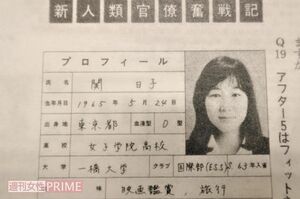 新人類官僚奮戦記
プロフィール
氏名 関 日子
生年月日 1965年 5月 24日
出身地 東京都 血液型 O型
高校 女子学院高校
大学 一橋大学 クラブ 国際部(ESS)
63年入省
映画鑑賞、旅行
Q
19
アフター5はフィット
週刊女性PRIME